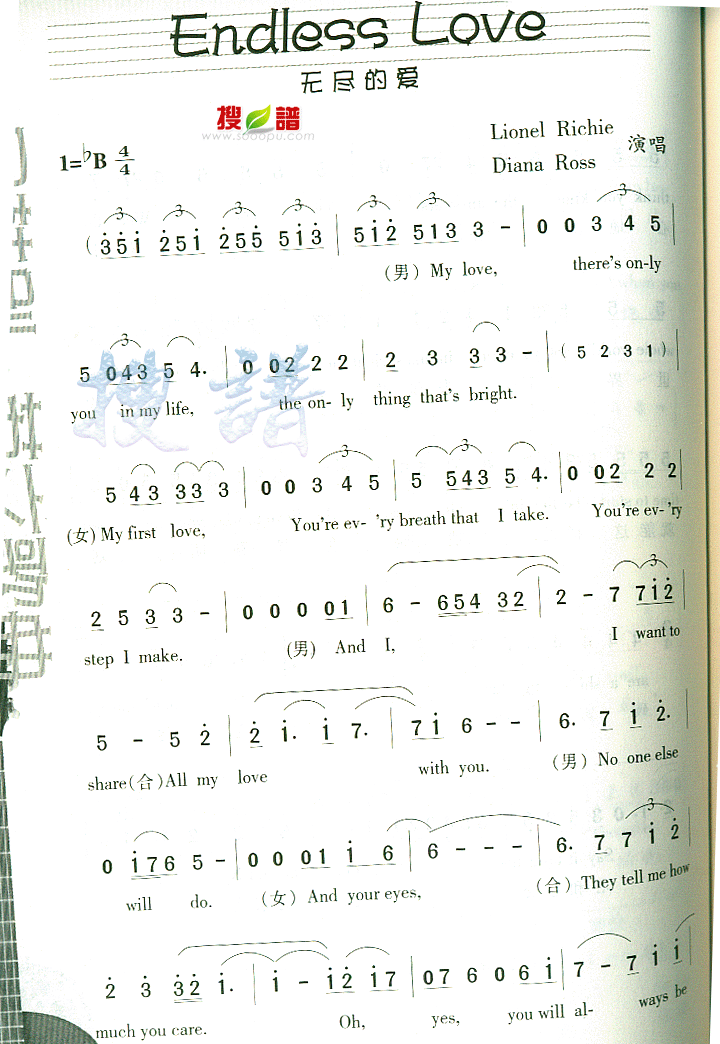 Endless Love
无尽的爱
搜譜
www.sooopu.com
Lionel Richie
Diana Ross
演唱
1=♭B 4/4
(3̇5i̇ 2̇5i̇ 2̇55 5i̇3̇ | 5i̇2̇ 5i̇3̇ 3 - | 0 0 3 4 5 |
(男) My love, there's on-ly
5 043 5 4. | 0 02 2 2 | 2 3 3 3 - | (5 2 3 1) |
you in my life, the on- ly thing that's bright.
5 43 33 3 | 0 0 3 4 5 | 5 543 5 4. | 0 02 2 2 |
(女) My first love, You're ev- 'ry breath that I take. You're ev-'ry
2 5 3 3 - | 0 0 0 01 | 6 - 654 32 | 2 - 7 7i̇2̇ |
step I make. (男) And I, I want to
5 - 5 2̇ | 2̇ i̇. i̇ 7. | 7i̇ 6 - - | 6. 7 i̇ 2̇. |
share(合)All my love with you. (男) No one else
0 i̇76 5 - | 0 0 01 i̇ 6 | 6 - - - | 6. 7 7 i̇ 2̇ |
will do. (女) And your eyes, (合) They tell me how
2̇ 3̇ 3̇2̇ i̇. | i̇ - i̇2̇ i̇7 | 07 6 0 6i̇ | 7 - 7 i̇ i̇ |
much you care. Oh, yes, you will al- ways be